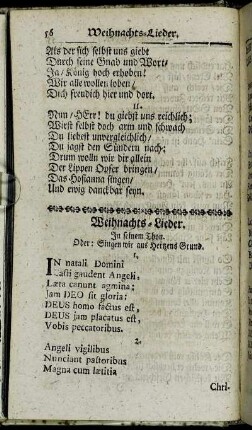 56 Weihnachts-Lieder.
Als der sich selbst uns giebt
Durch seine Gnad und Wort/
Ja/ König hoch erhoben!
Wir alle wollen loben/
Dich freudich hier und dort.
11.
Nun/ HErr! du giebst uns reichlich;
Wirst selbst doch arm und schwach
Du liebest unvergleichlich/
Du jagst den Sündern nach:
Drum welln wir dir allein
Der Lippen Opfer bringen/
Das Hosianna singen/
Und ewig danckbar seyn.
Weihnachts-Lieder.
In seinem Thon.
Oder: Singen wir aus Hertzens Grund.
1.
IN natali Domini
Casti gaudent Angeli,
Læta canunt agmina;
Jam DEO sit gloria:
DEUS homo factus est,
DEUS jam placatus est,
Vobis peccatoribus.
2.
Angeli vigilibus
Nunciant pastoribus
Magna cum lætitia
Chri-